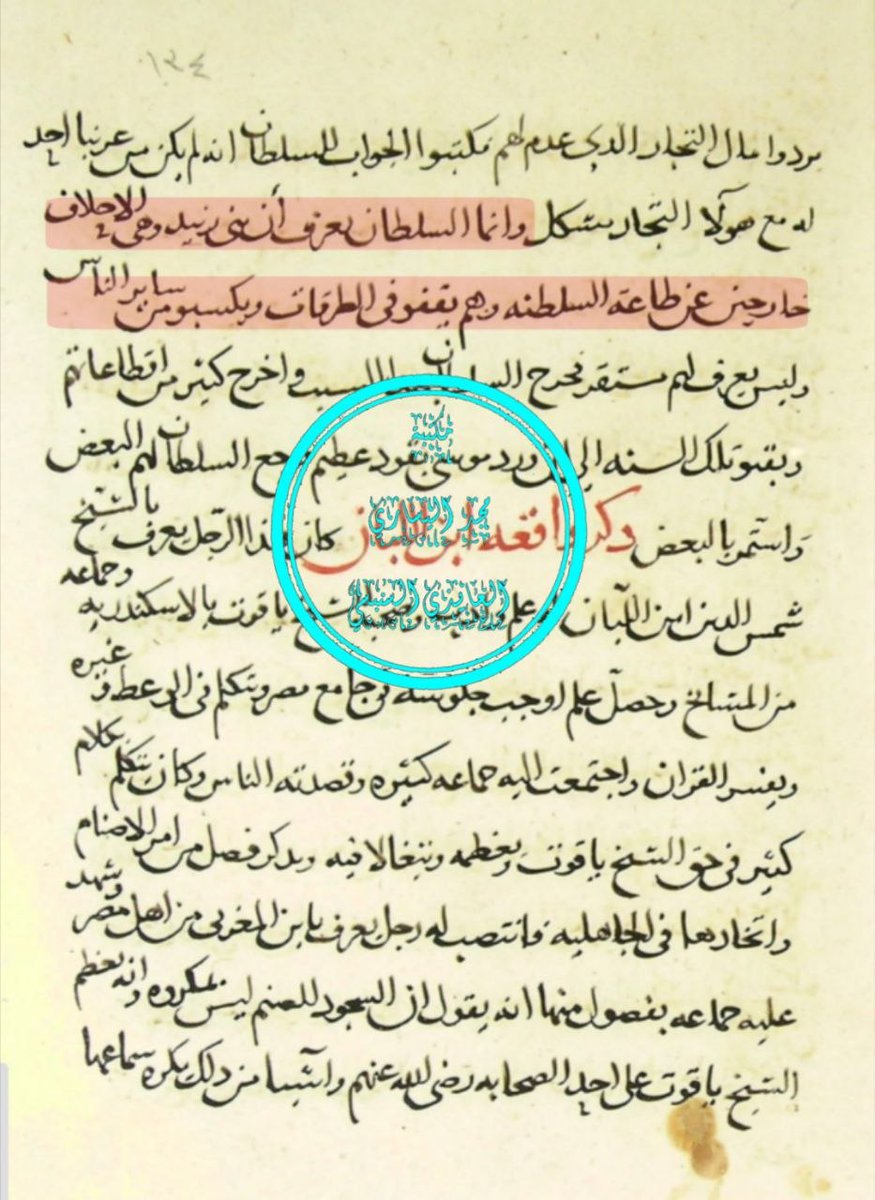 ١٣٤
يردوا مال التجار الدي عدم لهم فكتبوا الجواب للسلطان انه لم يكن من عربنا احد
له مع هولا التجار مشكل وانما السلطان يعرف أن بنى زبيد وهى الاحلاف
خارجين عن طاعة السلطنه وهم يقفو فى الطرقات ويكسبو من ساير الناس
وليس يعرف لهم مستقر فخرج السلطان السبب واخرج كثير من اقطاعاتهم
وبقيو تلك السنه الى ان ورد موسى بقود عظيم رجع السلطان لهم البعض
واستمر بالبعض ذكر واقعه ابن اللبان كان هذا الرجل يعرف بالشيخ
شمس الدين ابن اللبان علم الشيخ ياقوت بالاسكندريه وجماعه
من المشايخ وحصل علم اوجب جلوسه فى جامع مصر وتكلم فى الوعظ و غيره
ويفسر القران واجتمعت اليه جماعه كثيره وقصدته الناس وكان يتكلم بكلام
كثير فى حق الشيخ ياقوت ويعظمه ويتغالا فيه ويدكر فصل من امر الاصنام
واتخادها فى الجاهليه فانتصب له رجل يعرف بابن المغربى من اهل مصر وشهد
عليه جماعه بفصول منها انه يقول ان السجود للصنم ليس بمكروه وانه يعظم
الشيخ ياقوت على احد الصحابه رضى الله عنهم واشيا من دلك يكره سماعها
مكتبة
محمد
الحنبلي